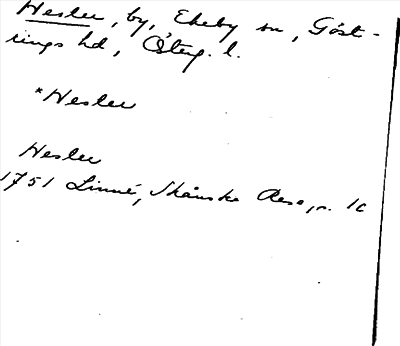 Hesler, by, Ekeby sn, Göst-
rings hd, Österg. l.
*Hesler
Hesler
1751 Linné, Skånska Resa, s. 10